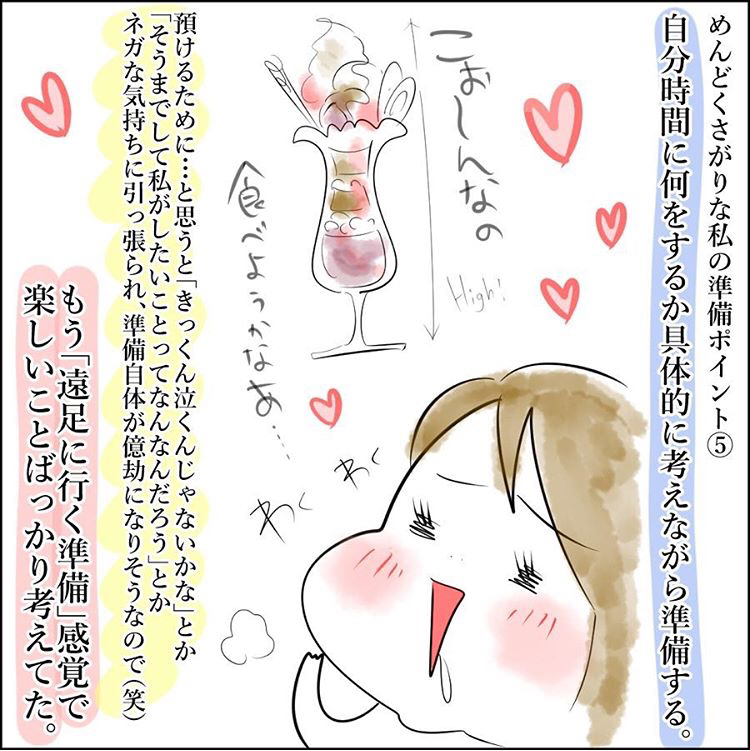 めんどくさがりな私の準備ポイント⑤
自分時間に何をするか具体的に考えながら準備する。
こおしんなの
High!
食べようかなあ…
わくわく
預けるために…と思うと「きっくん泣くんじゃないかな」とか
「そうまでして私がしたいことってなんなんだろう」とか
ネガな気持ちに引っ張られ、準備自体が億劫になりそうなので（笑）
もう「遠足に行く準備」感覚で
楽しいことばっかり考えてた。